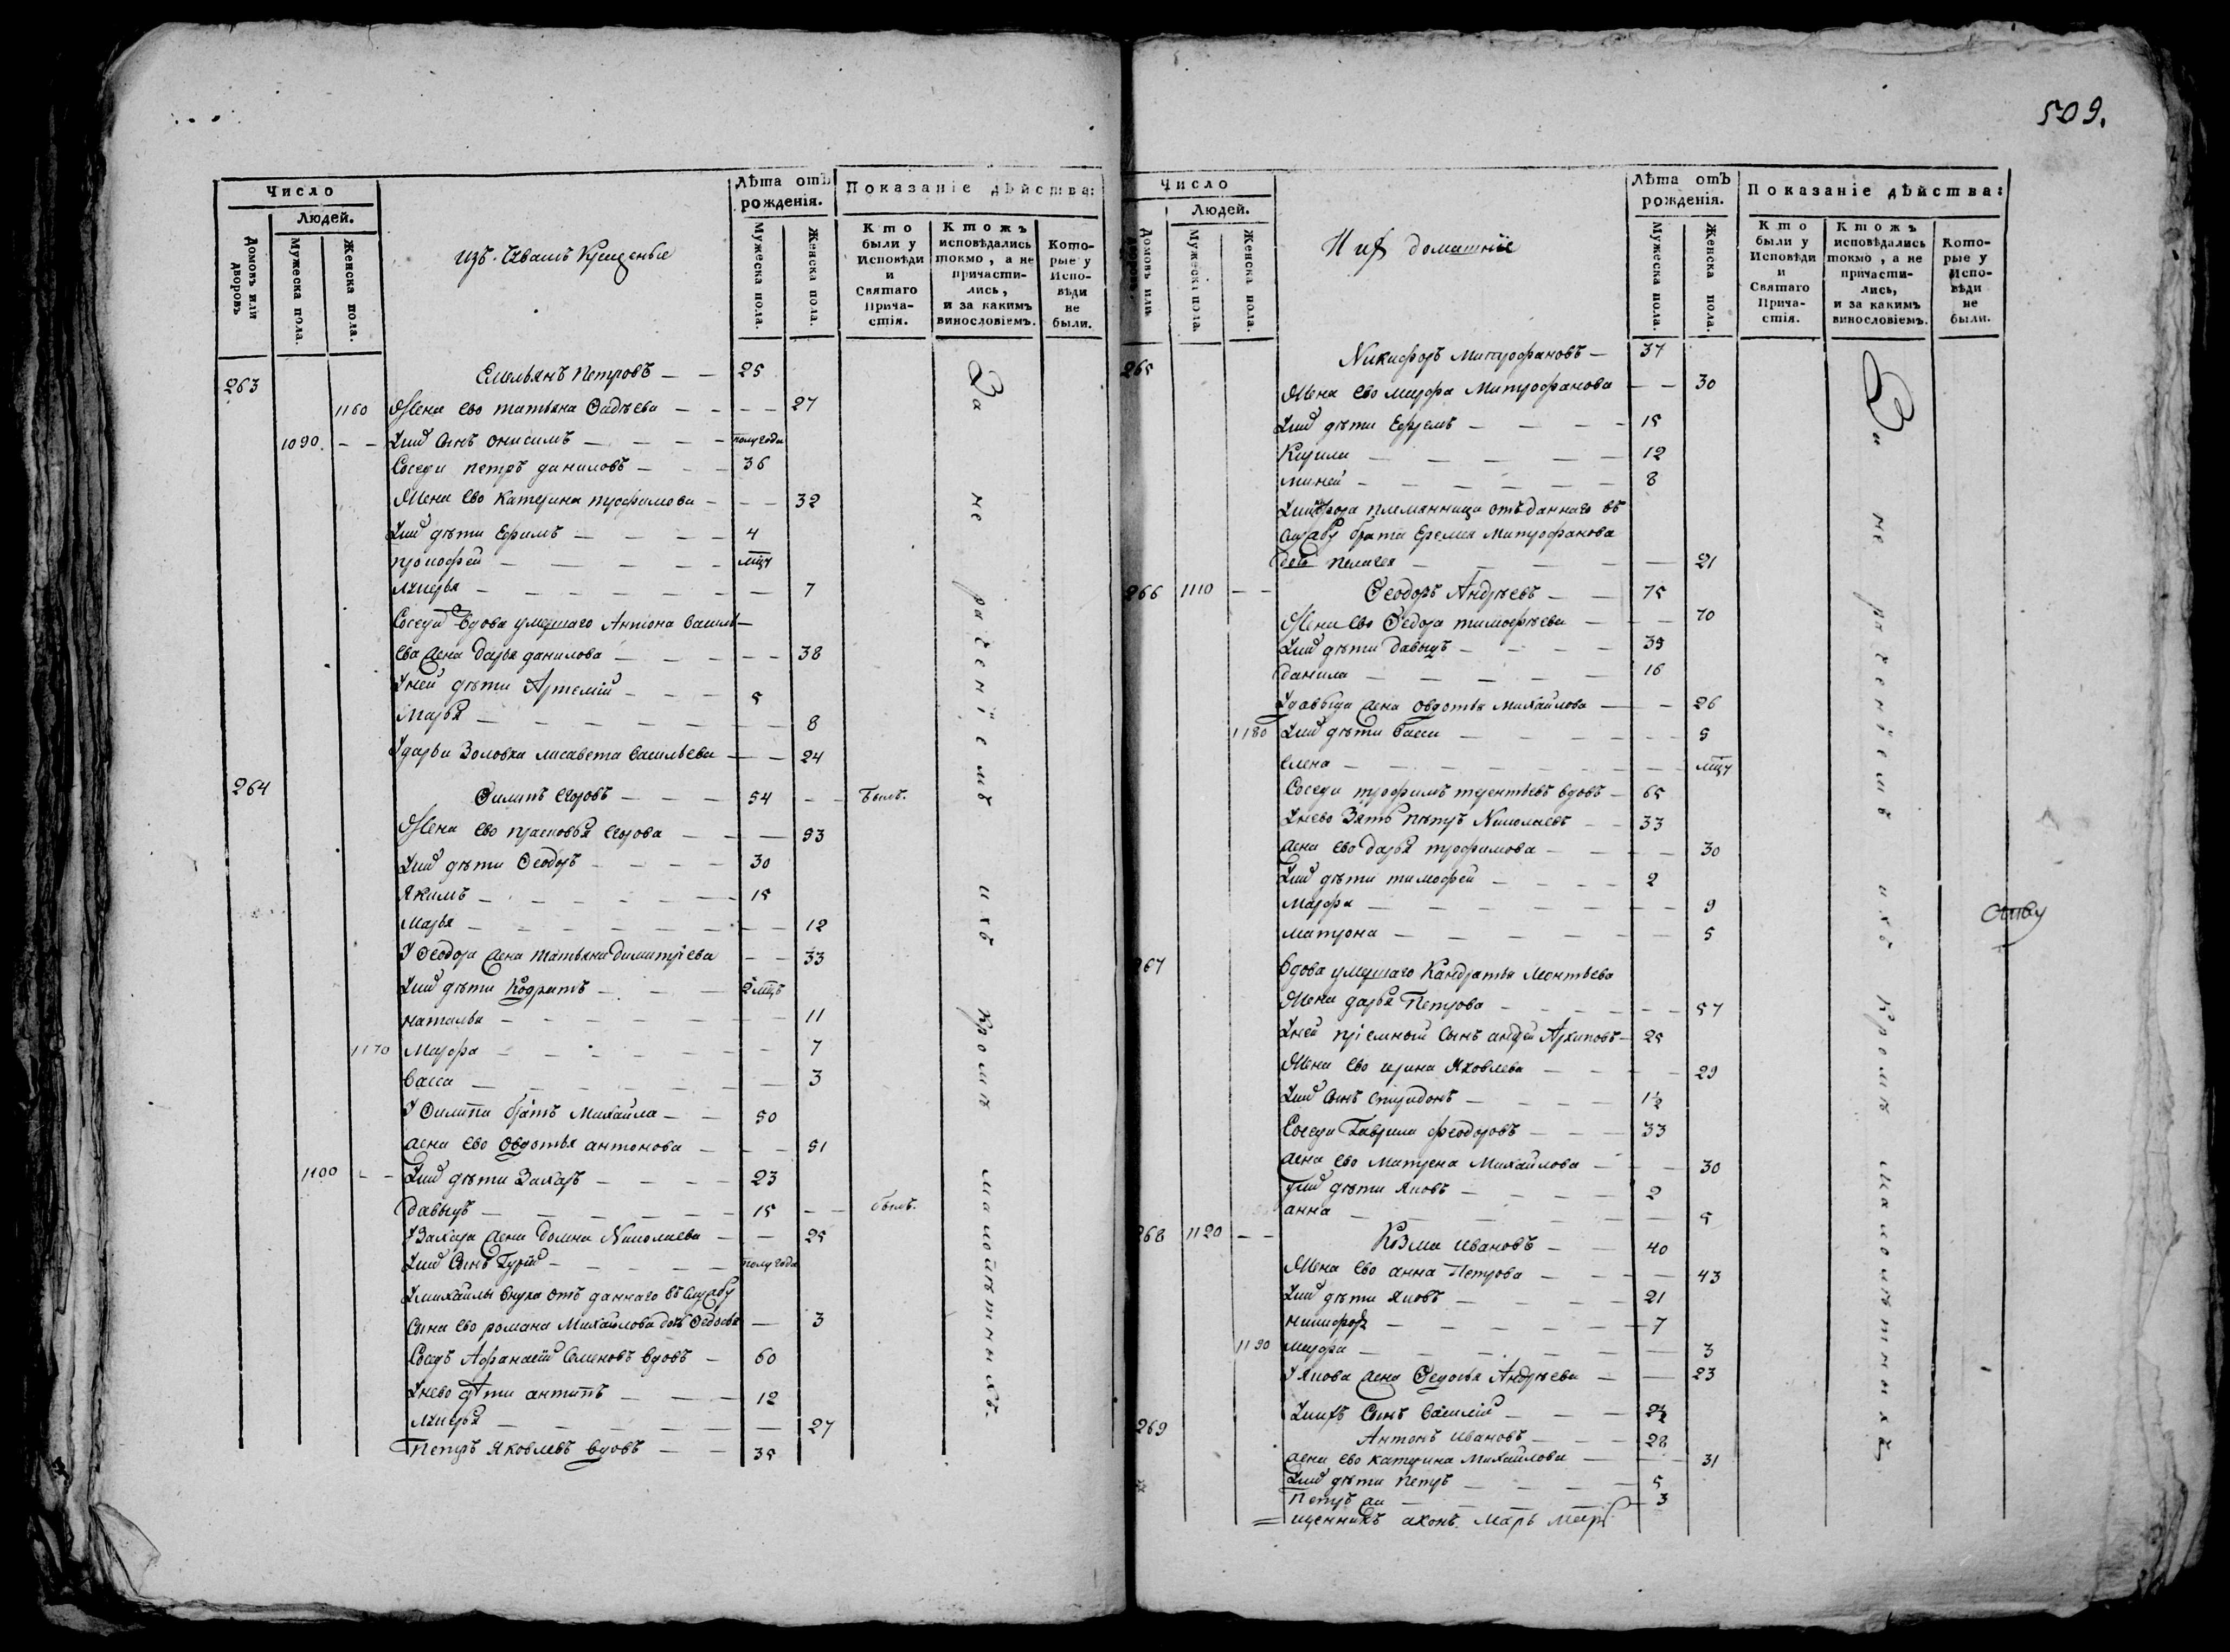 509.
Число
Людей.
Домовъ или дворовъ
Мужеска пола.
Женска пола.
изъ Чвашъ Крещеные
Лѣта отъ рожденія.
Мужеска пола.
Женска пола.
Показаніе дѣйства:
Кто были у Исповѣди и Святаго Прича-стія.
Ктожъ исповѣдались токмо, а не причасти-лись, и за какимъ винословіемъ.
Кото-рые у Испо-вѣди не были.
263 Емельянъ Петровъ — — 25
1160 Жена ево татьяна Фадѣева — — 27
1090 — — сынъ онисимъ — — полугоду
Соседъ петръ даниловъ — — 36
Жена ево Катерина трофимова — — 32
дѣти Ефимъ — — 4
прокофей — — мцу
лукерья — — 7
Соседи Вдова умершаго Антона Василь—
ева жена дарья данилова — — 38
Унеи дѣти Артемій — — 5
Марья — — 8
Ударьи Золовка лисавета Васильева — — 24
264 Филипъ Егоровъ — — 54 — — былъ.
Жена ево прасковья Егорова — — 53
дѣти Феодоръ — — 30
Якимъ — — 15
Марья — — 12
У Феодора жена татьяна димитріева — — 33
дѣти Кодратъ — — 2 мцъ
наталья — — 11
1170 Марфа — — 7
Васса — — 3
У Филипа братъ Михайла — — 50
жена ево Овдотья антонова — — 51
1100 — — дѣти Захаръ — — 23
давыдъ — — 15 — — былъ.
УЗахара жена домна Николаева — — 25
сынъ Гурій — — полугода
Умихайлы внука отъ даннаго въ службу
сына ево романа Михайлова Федосья — 3
Соседъ Афанасій Семеновъ вдовъ — 60
Унево дѣти антипъ — — 12
лукерья — — 27
Петръ Яковлевъ вдовъ — — 35
За не раченіемъ ихъ кромѣ малолѣтныхъ.
Число
Людей.
Домовъ или
Мужеска пола.
Женска пола.
И их домашніе
Лѣта отъ рожденія.
Мужеска пола.
Женска пола.
Показаніе дѣйства:
Кто были у Исповѣди и Святаго Прича-стія.
Ктожъ исповѣдались токмо, а не причасти-лись, и за какимъ винословіемъ.
Кото-рые у Испо-вѣди не были.
265 Никифоръ Митрофановъ — 37
Жена ево марфа Митрофанова — — 30
дѣти Ефремъ — — 15
Кирила — — 12
миней — — 8
племянница отъ даннаго въ
службу брата Еремея Митрофанова
пелагея — — 21
266 1110 — — Феодоръ Андреевъ — — 75
Жена ево Федора тимофѣева — — 70
дѣти давыдъ — — 35
данила — — 16
Удавыда жена овдотья михайлова — — 26
1180 дѣти Васса — — 5
елена — — мцу
Соседи трофимъ терентьевъ вдовъ — 65
Унево Зять Петръ Николаевъ — — 33
жена ево дарья трофимова — — 30
дѣти тимофей — — 2
Марфа — — 9
матрона — — 5
267 Вдова умершаго Кандратья Леонтьева
Жена дарья Петрова — — 57
Уней пріемной сынъ андрей Архиповъ — 25
Жена ево ирина Яковлева — — 29
сынъ спиридонъ — — 1½
Соседи Гаврила феодоровъ — — 33
жена ево матрена Михайлова — — 30
дѣти яковъ — — 2
анна — — 5
268 1120 — — Козма ивановъ — — 40
Жена ево анна Петрова — — 43
дѣти яковъ — — 21
никифоръ — — 7
1190 марфа — — 3
У якова жена Федосья Андреева — — 23
сынъ Василій — — 2½
269 Антонъ ивановъ — — 28
жена ево катерина михайлова — — 31
дѣти петръ — — 5
Петръ — — 3
щенникъ
За не раченіемъ ихъ кромѣ малолѣтныхъ